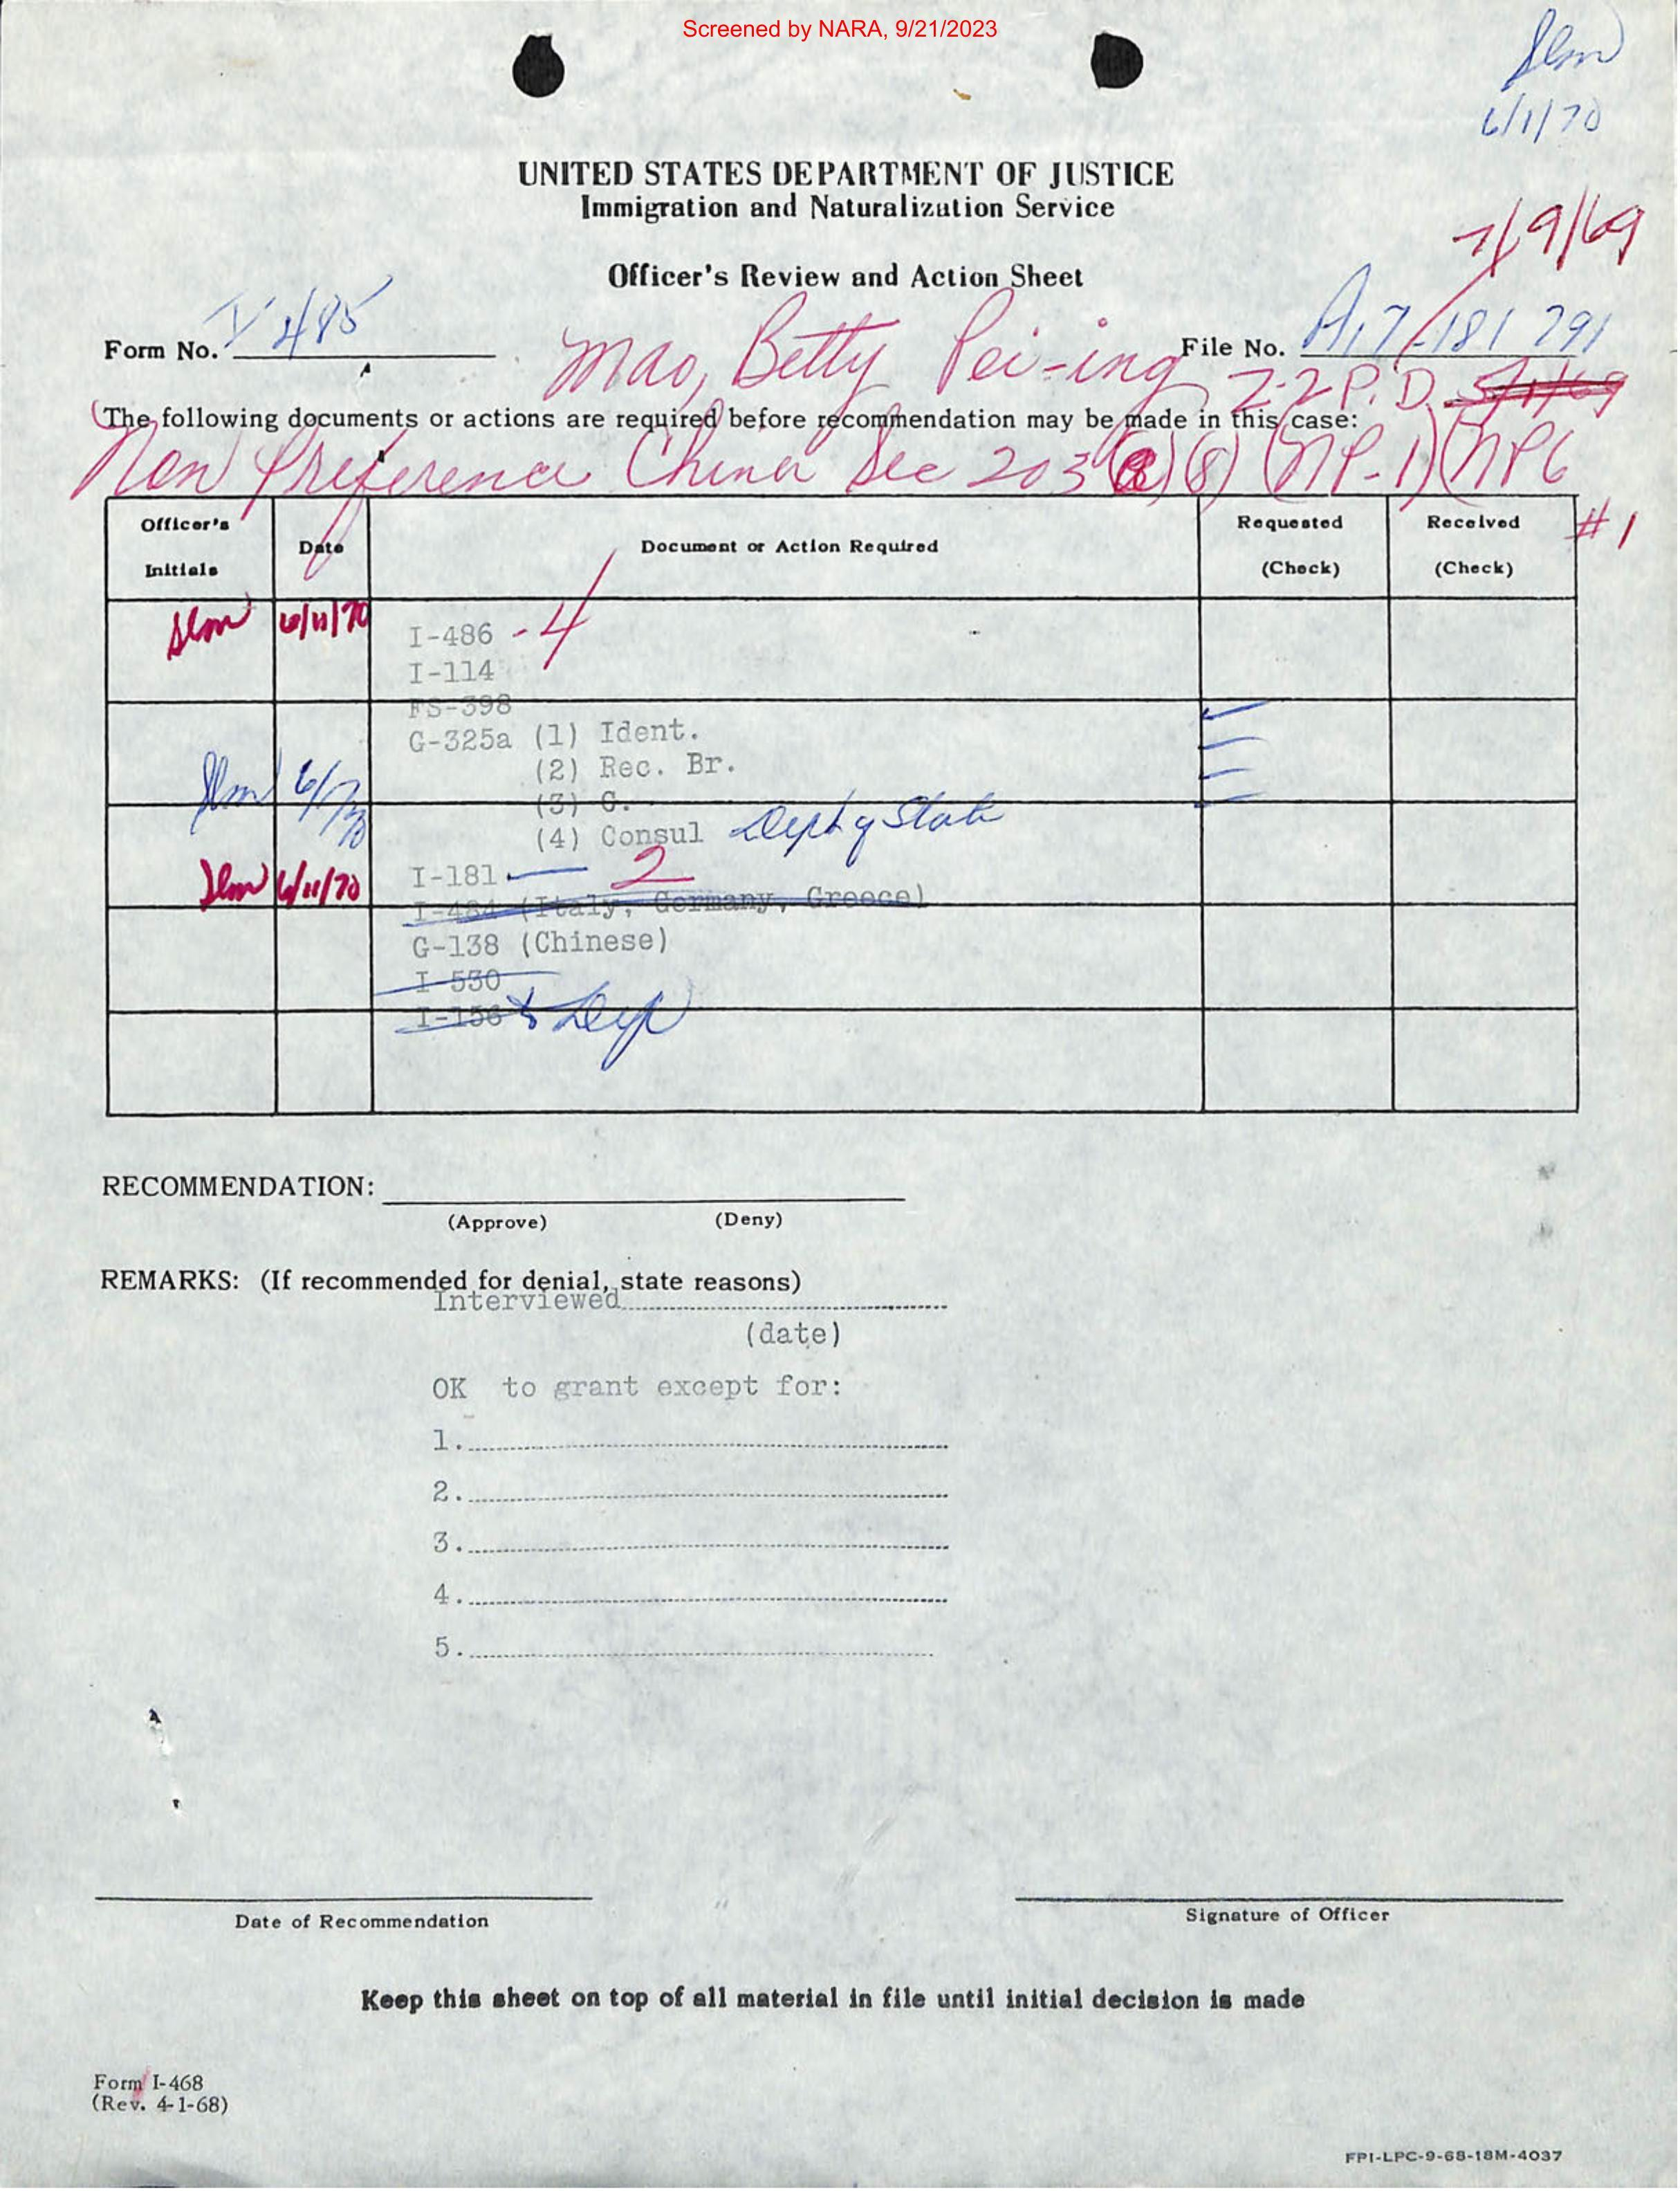 Screened by NARA, 9/21/2023
6/1/70
UNITED STATES DEPARTMENT OF JUSTICE
Immigration and Naturalization Service
7/9/69
Officer's Review and Action Sheet
Form No. I-485
Mao, Betty Pei-ing
File No. A17 181 291
Z-2 P.D. 5/1/69
The following documents or actions are required before recommendation may be made in this case:
Non Preference China Sec 203 (a)(8) (NP-1)(NP6
#1
Officer's Initials
Date
Document or Action Required
Requested (Check)
Received (Check)
6/11/70
I-486 - 4
I-114
FS-398
G-325a (1) Ident.
(2) Rec. Br.
6/1/70
(3) C.
(4) Consul Dept of State
6/11/70
I-181 2
I-484 (Italy, Germany, Greece)
G-138 (Chinese)
I-530
I-156
RECOMMENDATION:
(Approve) (Deny)
REMARKS: (If recommended for denial, state reasons)
Interviewed
(date)
OK to grant except for:
1.
2.
3.
4.
5.
Date of Recommendation
Signature of Officer
Keep this sheet on top of all material in file until initial decision is made
Form I-468
(Rev. 4-1-68)
FPI-LPC-9-68-18M-4037